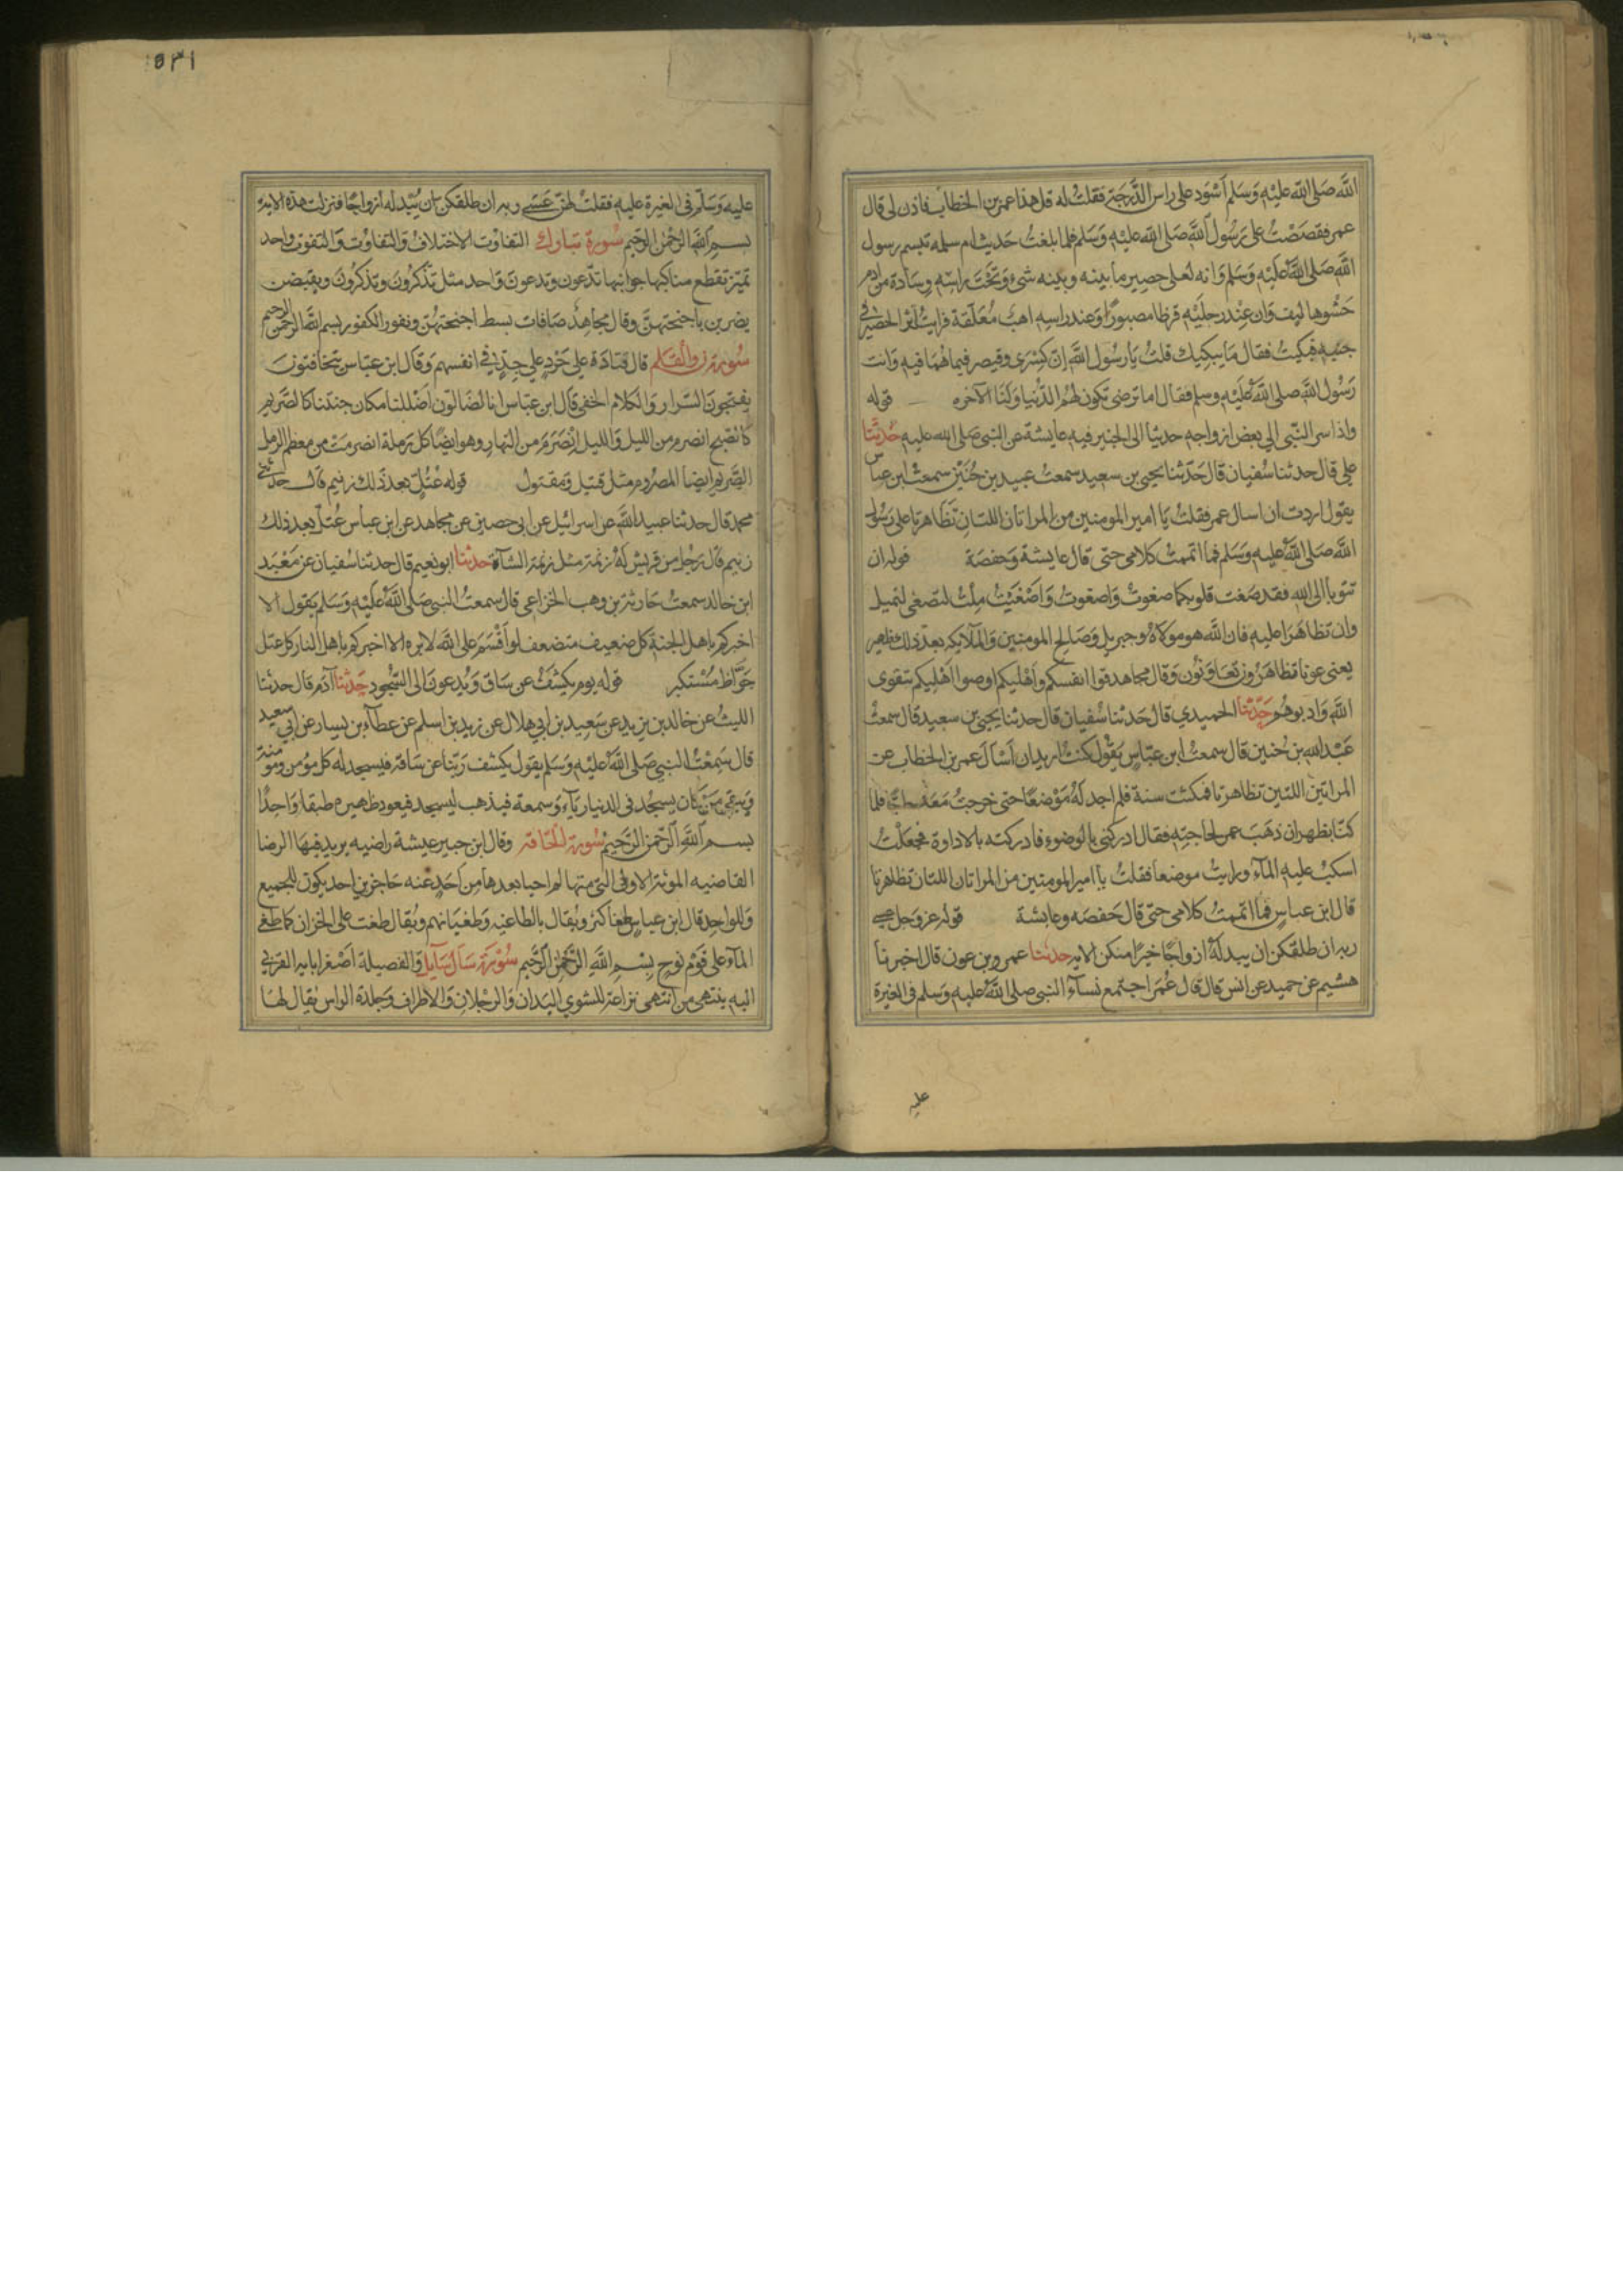 الله صلى الله عليه وسلم أسود على راس الدرجة فقلت له قل هذا عمر بن الخطاب فاذن لي قال
عمر فقصصت على رسول الله صلى الله عليه وسلم فلما بلغت حديث ام سلمه تبسم رسول
الله صلى الله عليه وسلم وانه لعلى حصير ما بينه وبينه شئ وتحت راسه وسادة من ادم
حشوها ليف وان عند رجليه قرظا مصبورا وعند راسه اهب معلقة فرايت اثر الحصير في
جنبه فبكيت فقال ما يبكيك قلت يا رسول الله ان كسرى وقيصر فيما هما فيه وانت
رسول الله صلى الله عليه وسلم فقال اما ترضى تكون لهم الدنيا ولنا الآخره قوله
واذ اسر النبي الى بعض ازواجه حديثا الى الخبير فيه عايشة عن النبي صلى الله عليه حدثنا
علي قال حدثنا سفيان قال حدثنا يحيى بن سعيد سمعت عبيد بن حنين سمعت ابن عباس
يقول اردت ان اسال عمر فقلت يا امير المومنين من المراتان اللتان تظاهرتا على رسول
الله صلى الله عليه وسلم فما اتممت كلامي حتى قال عايشة وحفصة قوله ان
تتوبا الى الله فقد صغت قلوبكما صغوت واصغوت واصغيت ملت لتصغى لتميل
وان تظاهرا عليه فان الله هو مولاه وجبريل وصالح المومنين والملايكه بعد ذلك ظهير
يعني عونا تظاهرون تعاونون وقال مجاهد قوا انفسكم واهليكم اوصوا اهليكم بتقوى
الله وادبوهم حدثنا الحميدي قال حدثنا سفيان قال حدثنا يحيى بن سعيد قال سمعت
عبد الله بن حنين قال سمعت ابن عباس يقول كنت اريد ان اسأل عمر بن الخطاب عن
المراتين اللتين تظاهرتا فمكثت سنة فلم اجد له موضعا حتى خرجت معه حاجا فلما
كنا بظهران ذهب عمر لحاجته فقال ادركني بالوضوء فادركته بالاداوة فجعلت
اسكب عليه المآء ورايت موضعا فقلت يا امير المومنين من المراتان اللتان تظاهرتا
قال ابن عباس فما اتممت كلامي حتى قال حفصه وعايشة قوله عز وجل عسى
ربه ان طلقكن ان يبدله ازواجا خيرا منكن الايه حدثنا عمرو بن عون قال اخبرنا
هشيم عن حميد عن انس قال قال عمر اجتمع نسآء النبي صلى الله عليه وسلم في الغيرة
عليه
عليه وسلم في الغيرة عليه فقلت لهن عسى ربه ان طلقكن ان يبدله ازواجا فنزلت هذه الاية
بسم الله الرحمن الرحيم سورة تبارك التفاوت الاختلاف والتفاوت والتفوت واحد
تميز تقطع مناكبها جوانبها تدعون وتدعون واحد مثل تذكرون وتذكرون ويقبضن
يضربن باجنحتهن وقال مجاهد صافات بسط اجنحتهن ونفور الكفور بسم الله الرحمن الرحيم
سورة ن والقلم قال قتادة على حرد على جد في انفسهم وقال ابن عباس يتخافتون
ينتجون السرار والكلام الخفي قال ابن عباس انا لضالون اضللنا مكان جنتنا كالصريم
كالصبح انصرم من الليل والليل انصرم من النهار وهو ايضا كل رملة انصرمت من معظم الرمل
الصريم ايضا المصروم مثل قتيل ومقتول قوله عتل بعد ذلك زنيم قال حدثني
محمد قال حدثنا عبيد الله عن اسرائيل عن ابي حصين عن مجاهد عن ابن عباس عتل بعد ذلك
زنيم قال رجل من قريش له زنمة مثل زنمة الشاة حدثنا ابو نعيم قال حدثنا سفيان عن معبد
ابن خالد سمعت حارثة بن وهب الخزاعي قال سمعت النبي صلى الله عليه وسلم يقول الا
اخبركم باهل الجنة كل ضعيف متضعف لو اقسم على الله لابره الا اخبركم باهل النار كل عتل
جواظ مستكبر قوله يوم يكشف عن ساق ويدعون الى السجود حدثنا آدم قال حدثنا
الليث عن خالد بن يزيد عن سعيد بن ابي هلال عن زيد بن اسلم عن عطآء بن يسار عن ابي سعيد
قال سمعت النبي صلى الله عليه وسلم يقول يكشف ربنا عن ساقه فيسجد له كل مؤمن ومؤمنة
ويبقى من كان يسجد في الدنيا ريآء وسمعة فيذهب ليسجد فيعود ظهره طبقا واحدا
بسم الله الرحمن الرحيم سورة الحاقة وقال ابن جبير عيشة راضيه يريد فيها الرضا
القاضيه الموتة الاولى التي متها لم احيا بعدها من احد عنه حاجزين احد يكون للجميع
وللواحد قال ابن عباس طغا كثر ويقال بالطاغيه وطغيانهم ويقال طغت على الخزان كما طغى
المآء على قوم نوح بسم الله الرحمن الرحيم سورة سأل سايل والفصيلة اصغر ابايه القربى
اليه ينتهي من انتهى نزاعة للشوي اليدان والرجلان والاطراف وجلدة الراس يقال لها